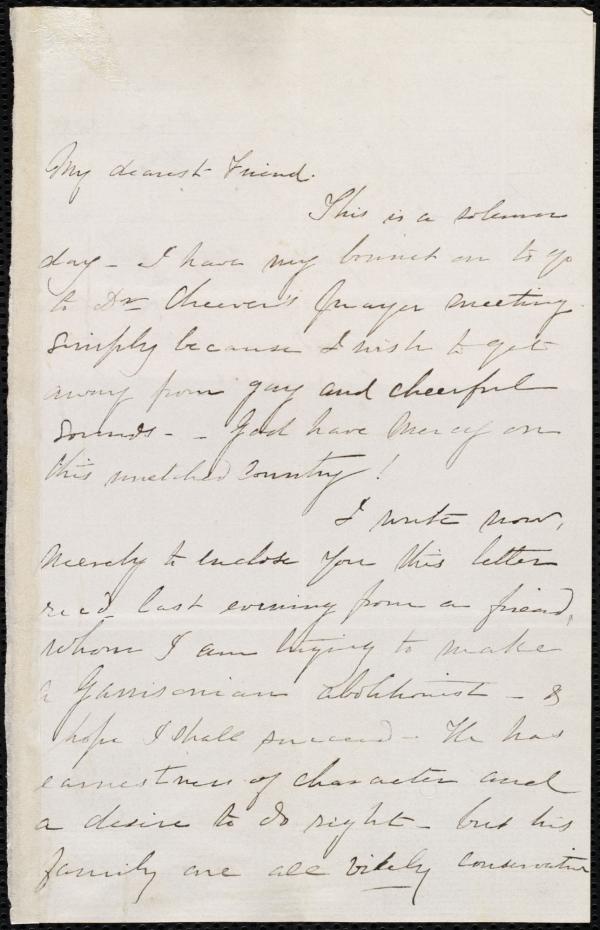 My dearest Friend.
This is a solemn
day - I have my bonnet on to go
to Dr Cheever's prayer meeting
simply because I wish to get
away from gay and cheerful
sounds - - God have Mercy on
this wretched country!
I write now,
merely to enclose you this letter
rec'd last evening from a friend,
whom I am trying to make
a Garrisonian abolitionist - &
hope I shall succeed - He has
earnestness of character and
a desire to do right - but his
family are all vilely conservative